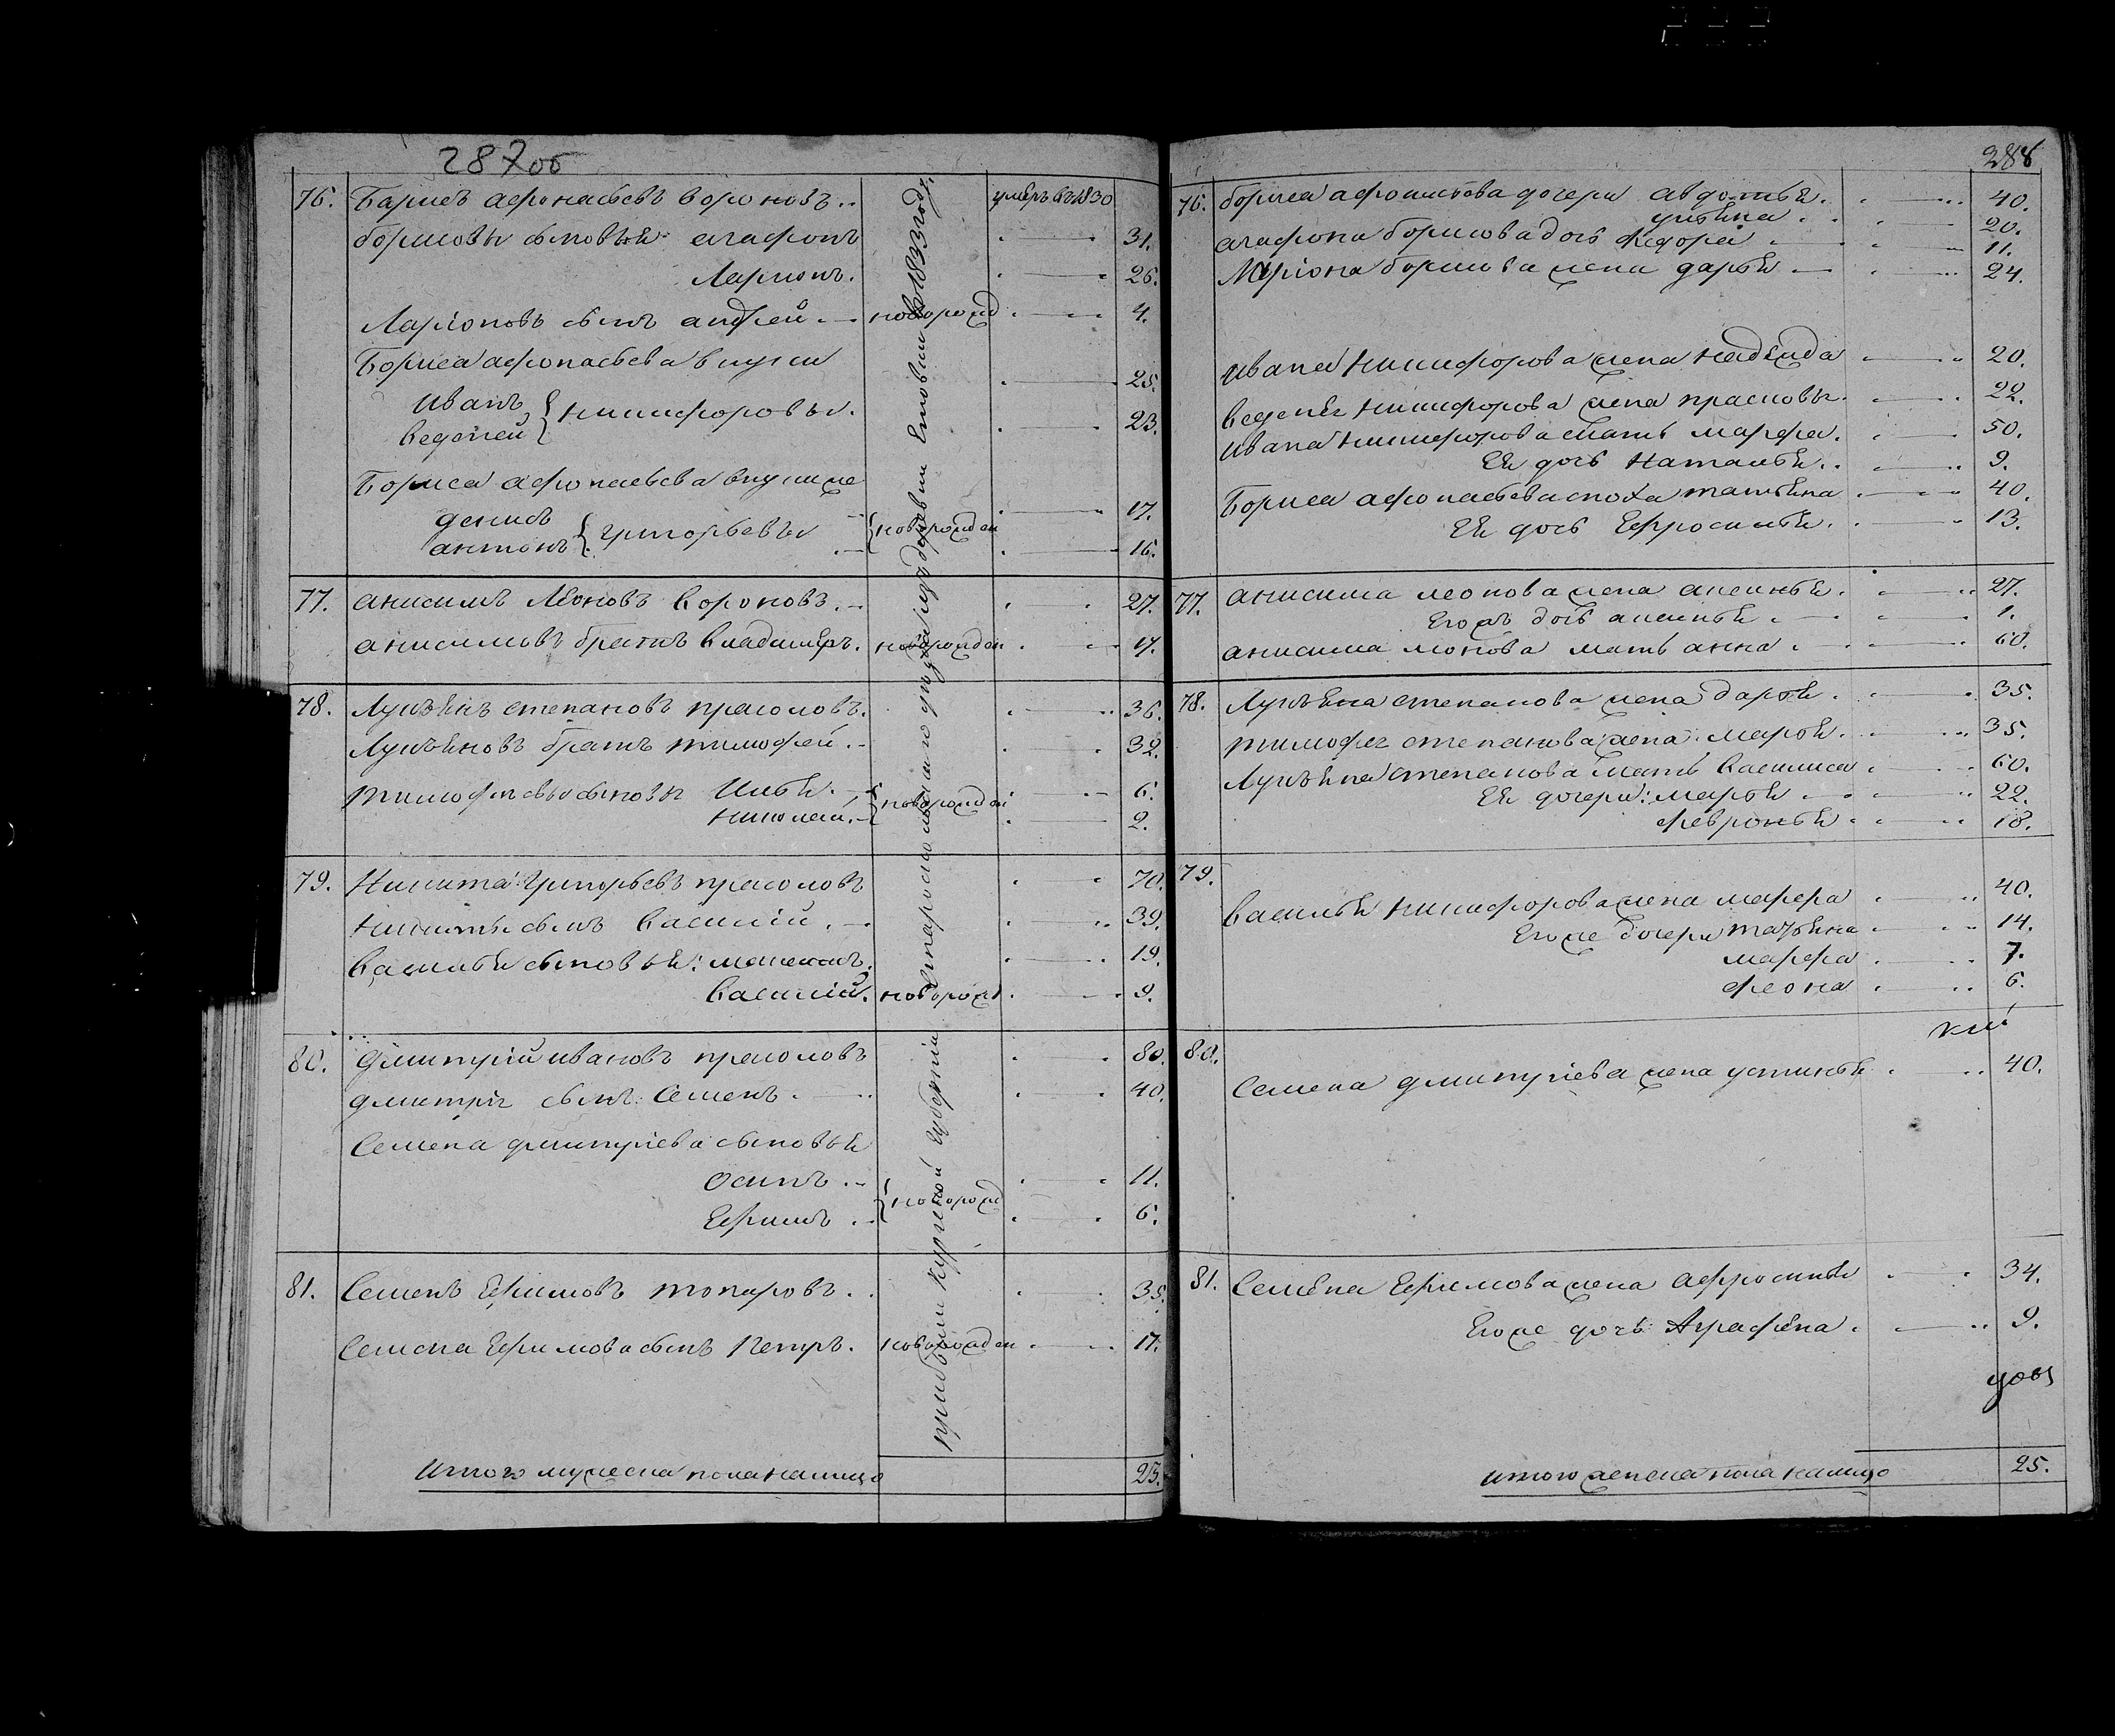 287об
76. Барисъ афонасьевъ вороновъ.. умеръ въ 1830
борисовы сыновья агафонъ 31.
Ларионъ. 26.
Ларіоновъ сынъ андрей новорожд 4.
Бориса афонасьева внуки
иванъ 25.
веденей } никифоровы. 23.
Бориса афонасьева внуки же
денисъ 17.
антонъ } григорьевы } новорожден 16.
77. анисимъ Леоновъ вороновъ. 27.
анисимовъ братъ владимеръ. новорожден 17.
78. Лукъянъ степановъ прасоловъ. 36.
Лукъяновъ братъ тимофей. 32.
тимофеевы сыновья Илья. 6.
николай. } новорожден 2.
79. Никита Григорьевъ прасоловъ 70.
никиты сынъ василий. 39.
василья сыновья: максимъ. 19.
василій. новорожд 9.
80. дмитрій ивановъ прасоловъ 80.
дмитрія сынъ: семенъ. 40.
Семена дмитріева сыновья
осипъ. 11.
Ефимъ. } новорожд 6.
81. Семенъ Ефимовъ топаровъ. 35.
Семена Ефимова сынъ Петръ. новорожден 17.
прибыли Курской губерніи Старооскольскаго уезда из деревни в 1833 году.
Итого мужеска пола налицо 25.
288
76. бориса афонасьева дочери авдотья. 40.
устьина. 20.
агафона борисова дочь федора 11.
Ларіона борисова жена дарья 24.
ивана никифорова жена надежда 20.
веденея никифорова жена прасковья. 22.
ивана никифорова мать марфа. 50.
Ея дочь Наталья.. 9.
Бориса афонасьева сноха татьяна 40.
Ея дочь Ефросинья. 13.
77. анисима леонова жена аксинья. 27.
Егожъ дочь аксинья. 1.
анисима леонова мать анна. 60.
78. Лукъяна степанова жена дарья. 35.
тимофея степанова жена: марья. 35.
Лукъяна степанова мать василиса 60.
Ея дочери: марья 22.
февронья. 18.
79. василья никифорова жена марфа 40.
Егоже дочери татьяна 14.
марфа 7.
феона 6.
80. Семена дмитріева жена устинья 40.
81. Семена Ефимова жена афросинья 34.
Егоже дочь Аграфена. 9.
итого женска пола налицо 25.